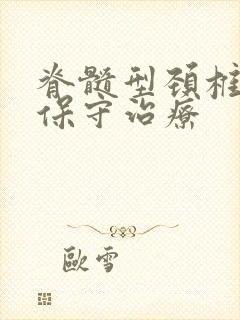 脊髓型颈椎
保守治療
歐雪